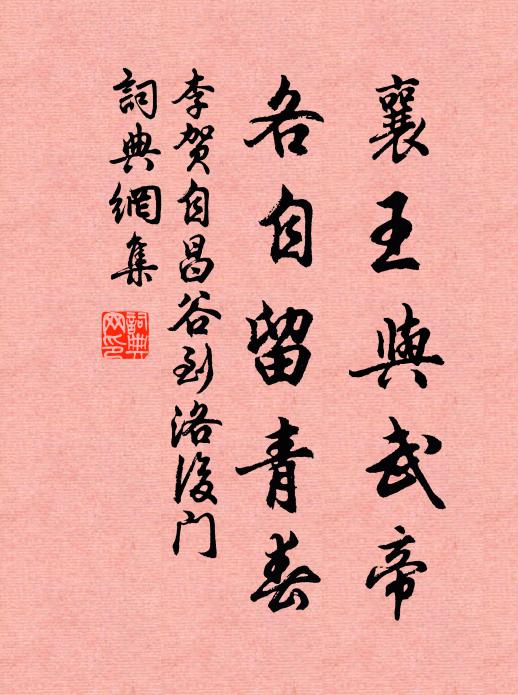 襄王與武帝
各自留青春
李贺自昌谷到洛後门
詞典網集
詞典網印